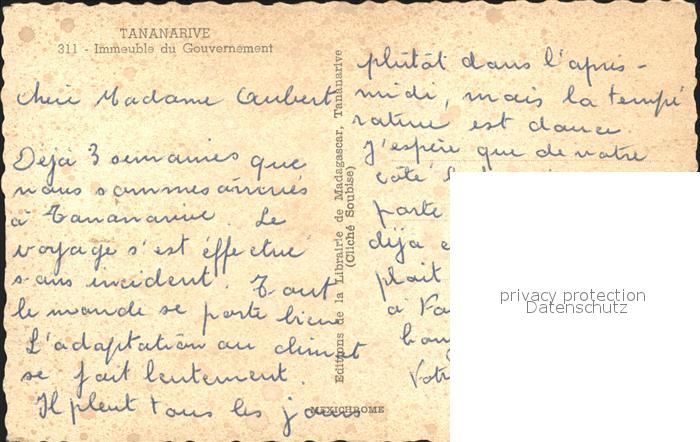 TANANARIVE
311 - Immeuble du Gouvernement
Chère Madame Aubert
Déjà 3 semaines que
nous sommes arrivés
à Tananarive. Le
voyage s'est éffectué
sans incident. Tout
le monde se porte bien
L'adaptation au climat
se fait lentement.
Il pleut tous les jours
Editions de la Librairie de Madagascar, Tananarive
(Cliché Soubise)
MEXICHROME
plutôt dans l'après-
midi, mais la tempé
rature est douce.
J'espère que de votre
côté
porte
déja
plait
à
Votre
privacy protection
Datenschutz